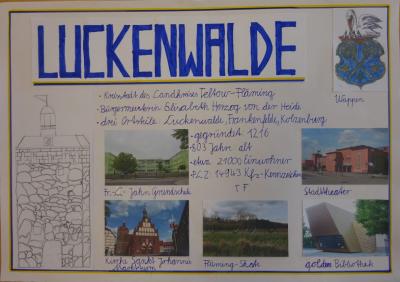 LUCKENWALDE
· Kreisstadt des Landkreises Teltow-Fläming
· Bürgermeisterin Elisabeth Herzog von der Heide
· drei Ortsteile Luckenwalde, Frankenfelde, Kolzenburg
Wappen
· gegründet 1216
· 803 Jahre alt
· etwa 21000 Einwohner
· PLZ 14943 Kfz-Kennzeichen
TF
Fr.-L.-Jahn Grundschule
Stadttheater
Kirche Sankt Johannis
Marktturm
Fläming-Skate
golden Bibliothek